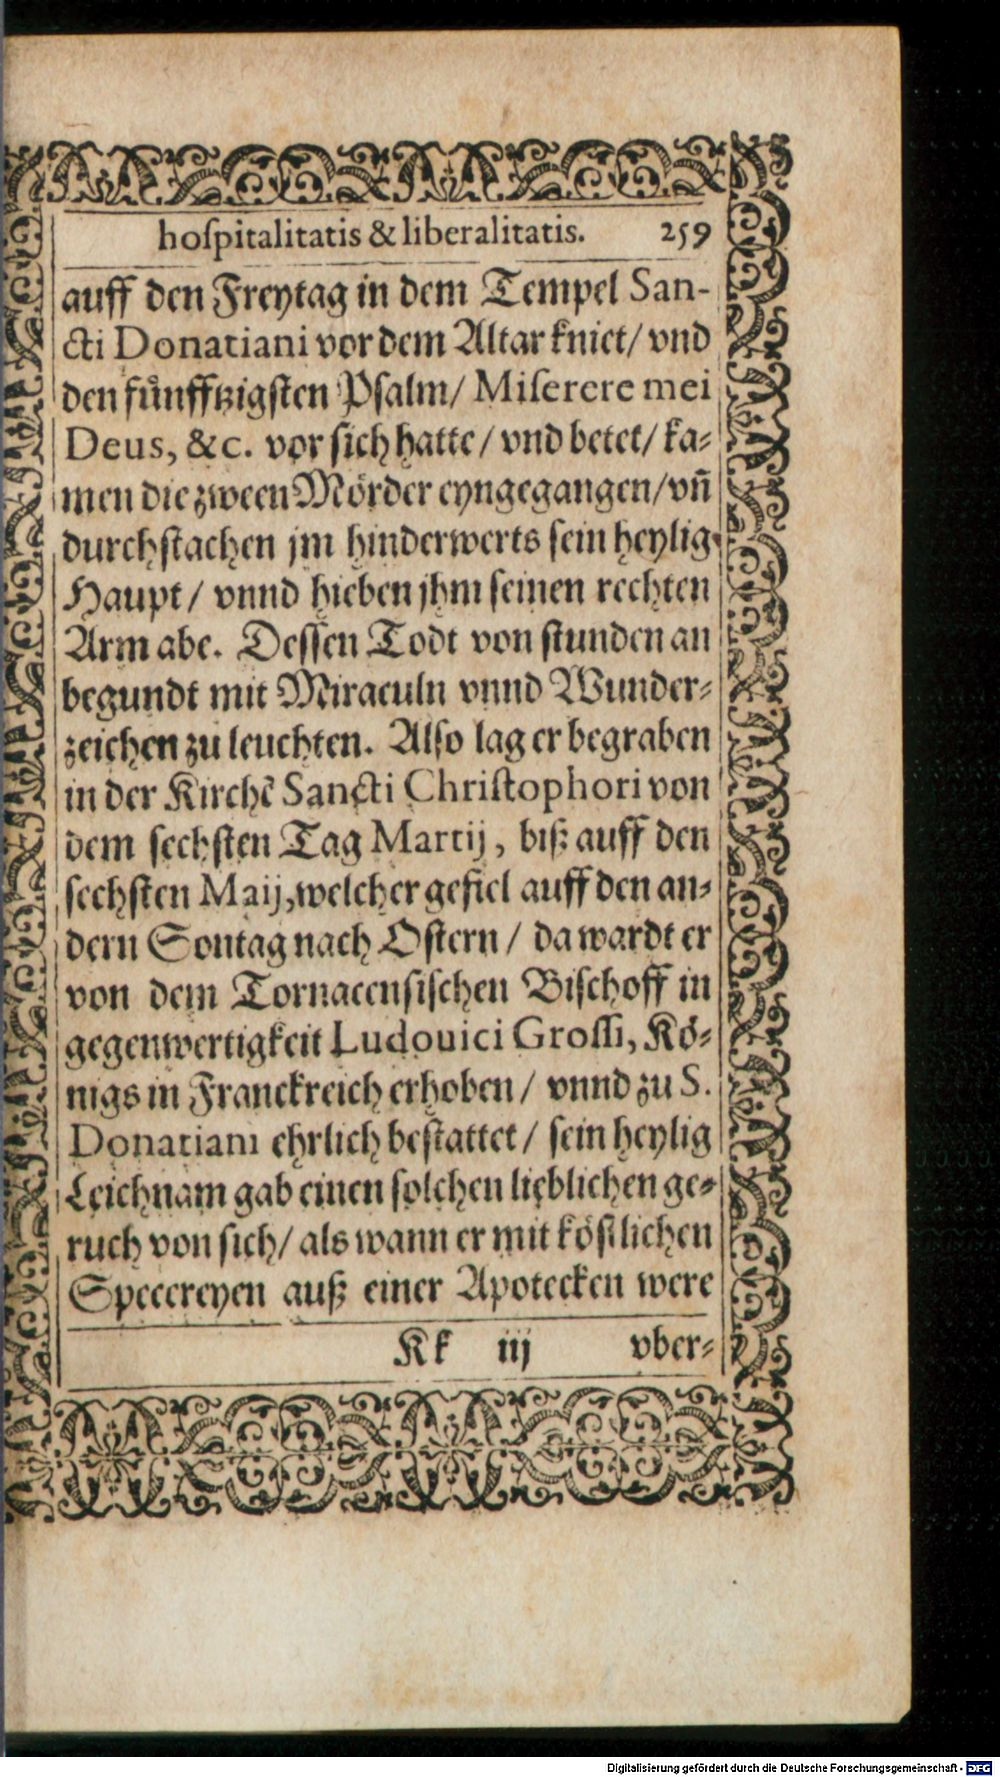 hoſpitalitatis & liberalitatis. 259
auff den Freytag in dem Tempel San-
cti Donatiani vor dem Altar kniet/ vnd
den fuͤnfftzigſten Pſalm/ Miſerere mei
Deus, &c. vor ſich hatte/ vnd betet/ ka-
men die zween Moͤrder eyngegangen/ vñ
durchſtachen jm hinderwerts ſein heylig
Haupt/ vnnd hieben jhm ſeinen rechten
Arm abe. Deſſen Todt von ſtunden an
begundt mit Miraculn vnnd Wunder-
zeichen zu leuchten. Alſo lag er begraben
in der Kirchẽ Sancti Chriſtophori von
dem ſechſten Tag Martij, biß auff den
ſechſten Maij, welcher gefiel auff den an-
dern Sontag nach Oſtern/ da wardt er
von dem Tornacenſiſchen Biſchoff in
gegenwertigkeit Ludouici Groſſi, Koͤ-
nigs in Franckreich erhoben/ vnnd zu S.
Donatiani ehrlich beſtattet/ ſein heylig
Leichnam gab einen ſolchen lieblichen ge-
ruch von ſich/ als wann er mit koͤſtlichen
Specereyen auß einer Apotecken were
Kk iij vber-
Digitalisierung gefördert durch die Deutsche Forschungsgemeinschaft - DFG